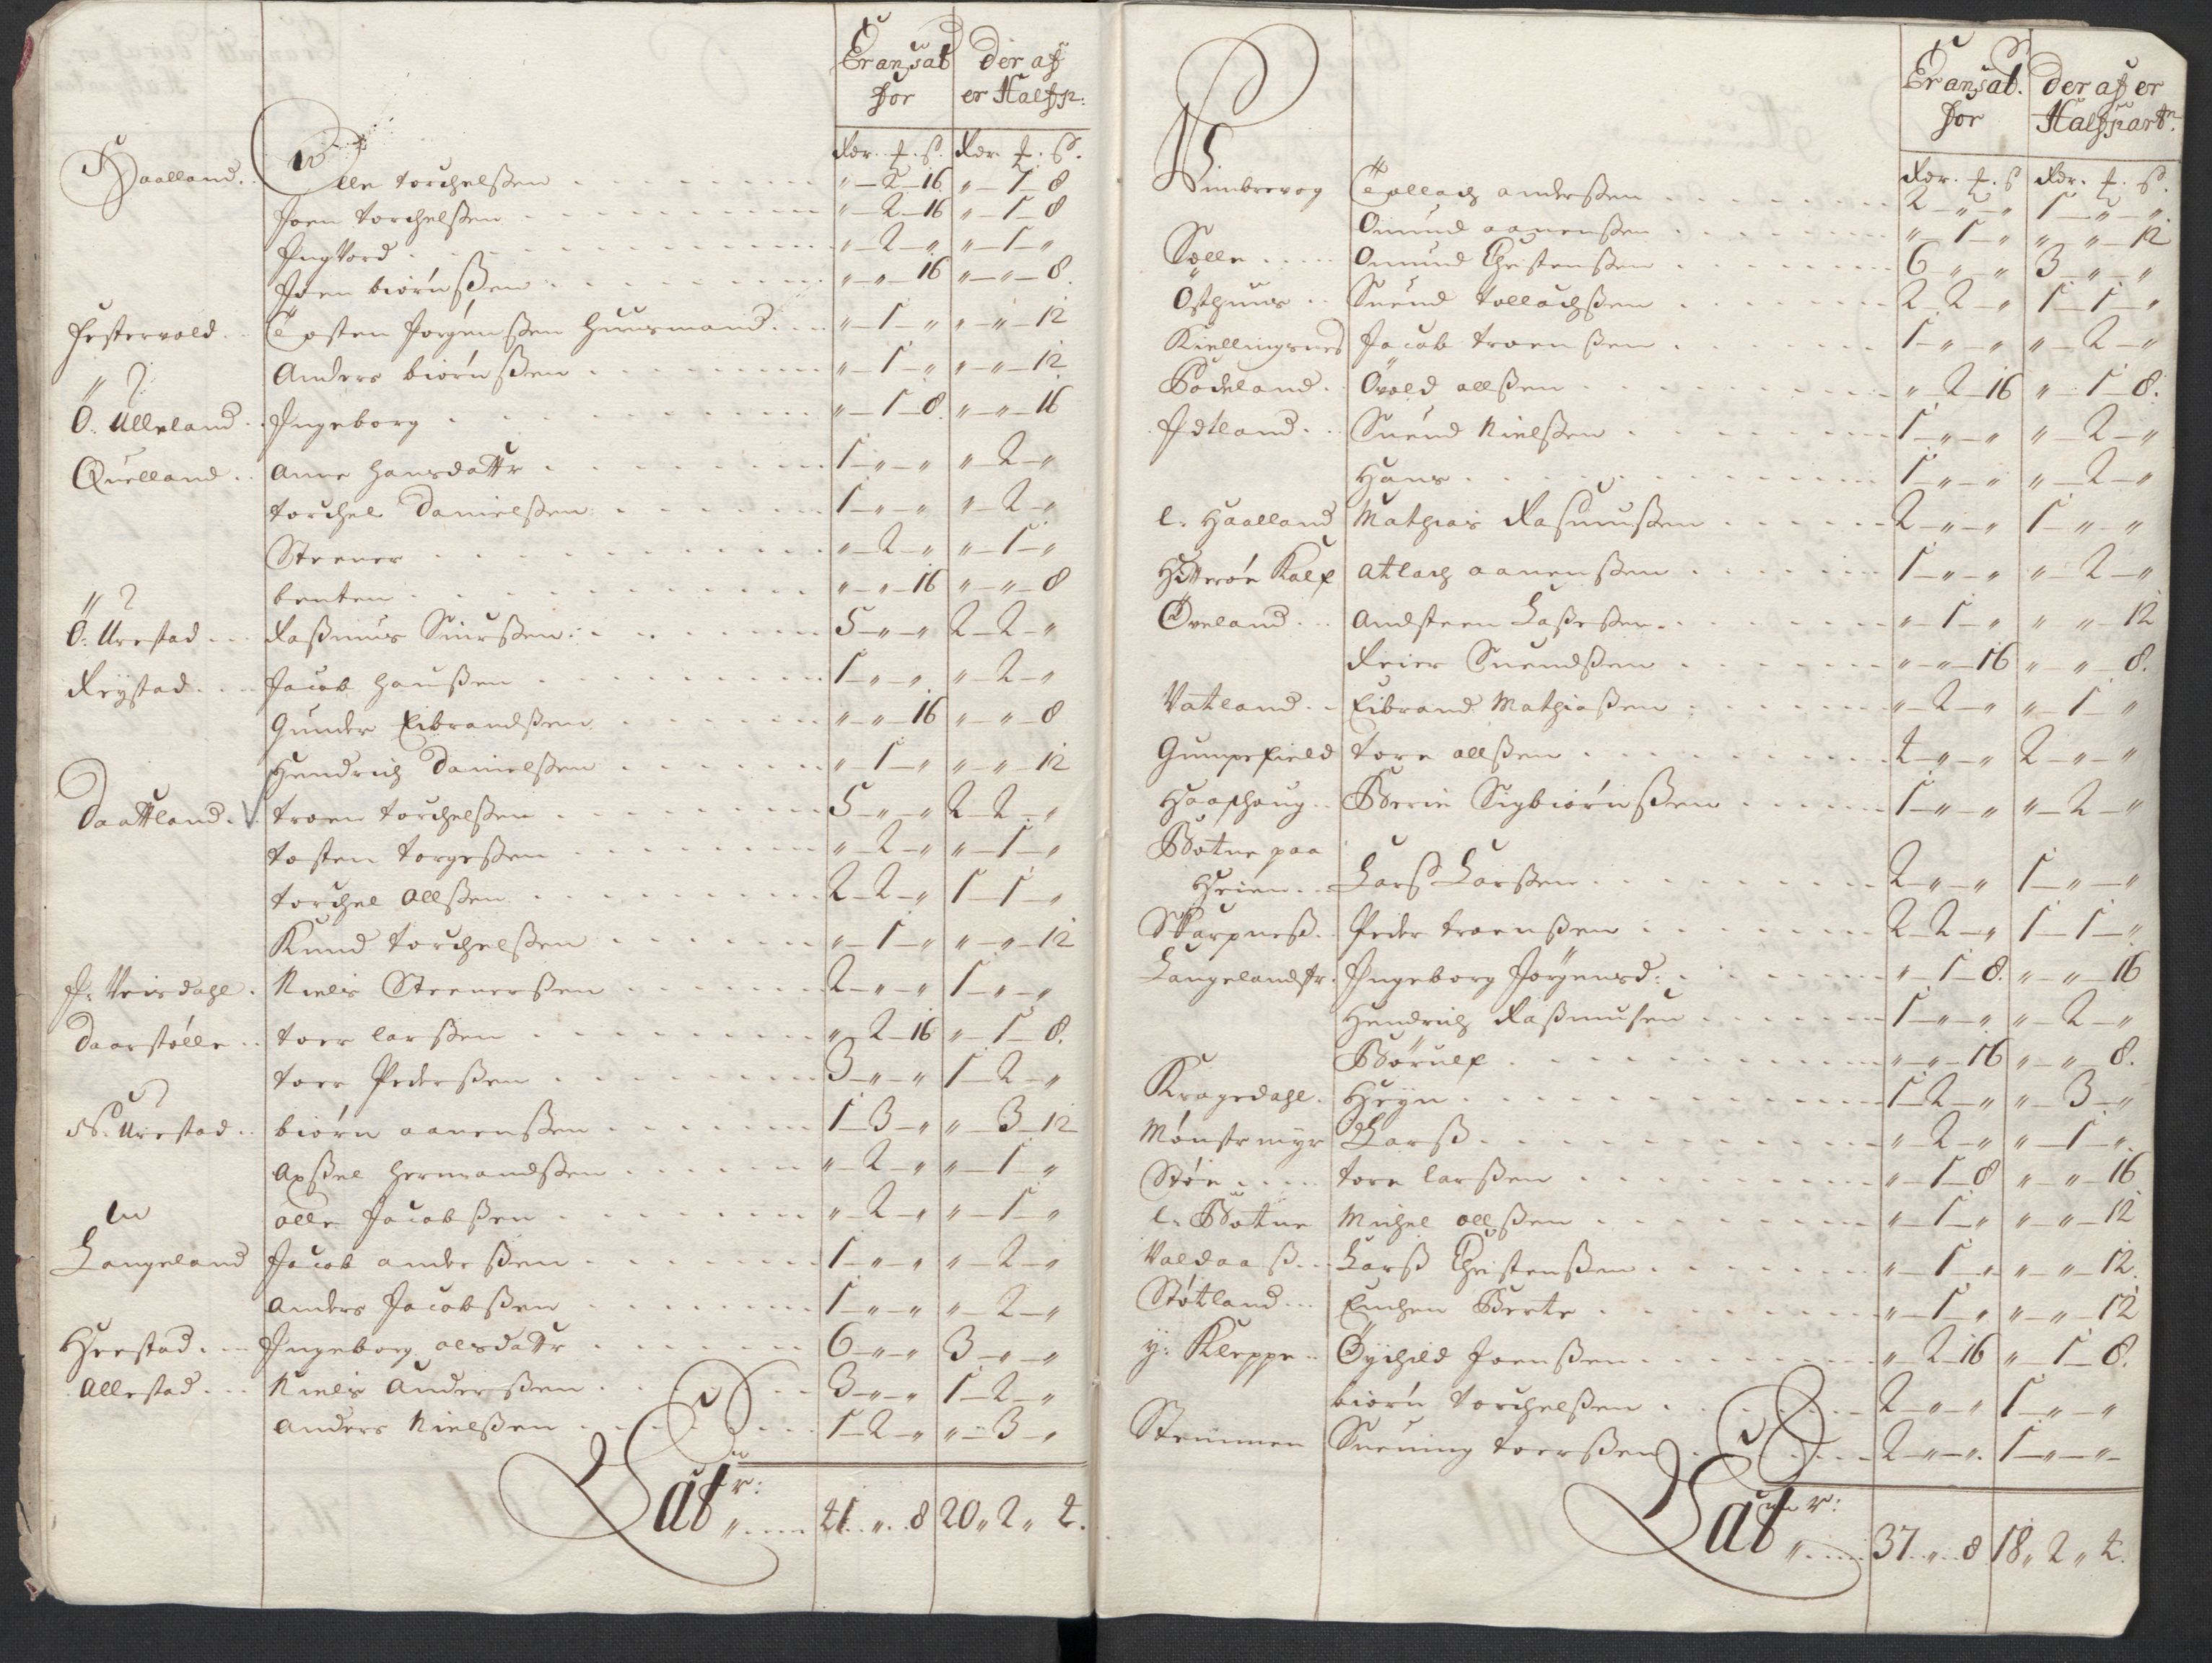 Er ansat | der af
for | er Halfp:
Rdr. t. s. | Rdr. t. s.
Haaland. Olle torchelßen " 2 16 " 1 8
Joen torchelßen " 2 16 " 1 8
Ingvord " 2 " " 1 "
Joen biørnßen " " 16 " " 8
festervold Tosten Jørgenßen huusmand " 1 " " " 12
" Anders biørnßen " 1 " " " 12
O: Ulleland Ingeborg " 1 8 " " 16
Quelland Anne hansdattr 1 " " " 2 "
torchel Danielßen 1 " " " 2 "
Steener " 2 " " 1 "
" benten " " 16 " " 8
O: Urestad Raßmus Siurßen 5 " " 2 2 "
Reystad Jacob hanßen 1 " " " 2 "
Gunder Eibrandßen " " 16 " " 8
Hendrich Danielßen " 1 " " " 12
Daattland. troen torchelßen 5 " " 2 2 "
tosten torgeßen " 2 " " 1 "
torchel Ollßen 2 2 " 1 1 "
Knud torchelßen " 1 " " " 12
Niels Steenerßen 2 " " 1 " "
Daarstølle toer larßen " 2 16 " 1 8
tore Pederßen 3 " " 1 2 "
N: Urestad biørn aanenßen 1 3 " " 3 12
Axßel hermandßen " 2 " " 1 "
olle Jacobßen " 2 " " 1 "
Langeland Jacob anderßen 1 " " " 2 "
Anders Jacobßen 1 " " " 2 "
Heestad Ingeborg olsdattr 6 " " 3 " "
Allestad Niels Anderßen 3 " " 1 2 "
Anders Nielßen 1 2 " " 3 "
Latr: 41 " 8 20 " 2 " 4.
Er ansat. | der af er
for | Halfpartn
Rdr. t. s | Rdr. t. s.
Wimbrevog Tollach anderßen 2 " " 1 " "
Omund aanenßen " 1 " " " 12
Sølle Omund Christenßen 6 " " 3 " "
Østhuus Suend tollachßen 2 2 " 1 1 "
Kiellingsnes Jacob troenßen 1 " " " 2 "
Rodeland Ovold allßen " 2 16 " 1 8
Idland Suend Nielßen 1 " " " 2 "
Hans 1 " " " 2 "
l. Haalland Mathias Rasmusßen 2 " " 1 " "
Hitterøe Kalf Atlach aanenßen 1 " " " 2 "
Øveland Andsteen Laßeßen " 1 " " " 12
Reier Suendßen " " 16 " " 8.
Vatland Eibrand Mathiaßen " 2 " " 1 "
Gumpefield tore allßen 4 " " 2 " "
Haafhaug Berie Sigbiørnßen 1 " " " 2 "
Botne paa
Heien Larß Larßen 2 " " 1 " "
Skarpneß Peder troenßen 2 2 " 1 1 "
Langelandstr. Ingeborg Jørgensd: " 1 8 " " 16
Hendrich Raßmusen 1 " " " 2 "
Børulf " " 16 " " 8.
Kragedahl Heyn 1 2 " " 3 "
Mønstremyr Larß " 2 " " 1 "
Støe tore larßen " 1 8 " " 16
l. Botne Michel ollßen " 1 " " " 12
Valdaaß Larß Christenßen " 1 " " " 12
Støtland Enchen Berte " 1 " " " 12
y: Kleppe Øyshild Joenßen " 2 16 " 1 8.
biørn torchelßen 2 " " 1 " "
Stemmen Suening toerßen 2 " " 1 " "
Latr: 37 " 8 18 " 2 " 4.